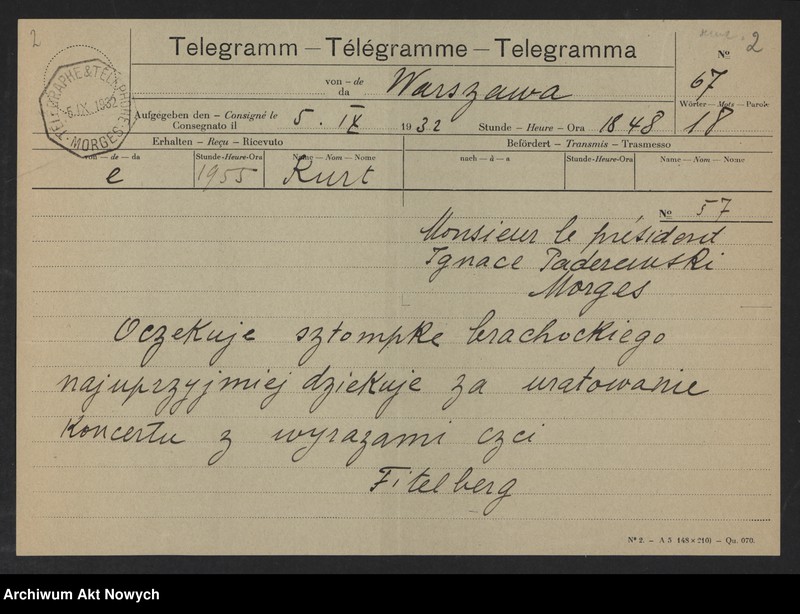 2
2
Telegramm — Télégramme — Telegramma
TELEGRAPHE & TELEPHONE
-6.IX.1932
MORGES
von – de
da
Warszawa
№
67
Wörter — Mots — Parole
18
Aufgegeben den – Consigné le
Consegnato il
5. IX 1932 Stunde – Heure – Ora 18 48
Erhalten – Reçu – Ricevuto
Befördert – Transmis – Trasmesso
von – de – da Stunde-Heure-Ora Name – Nom – Nome nach – à – a Stunde-Heure-Ora Name – Nom – Nome
e 1955 Kurt
№ 57
Monsieur le président
Ignace Paderewski
Morges
Oczekuje sztompke brachockiego
najuprzyjmiej dziekuje za uratowanie
Koncertu z wyrazami czci
Fitelberg
№ 2. – A 5 (148 × 210) – Qu. 070.
Archiwum Akt Nowych